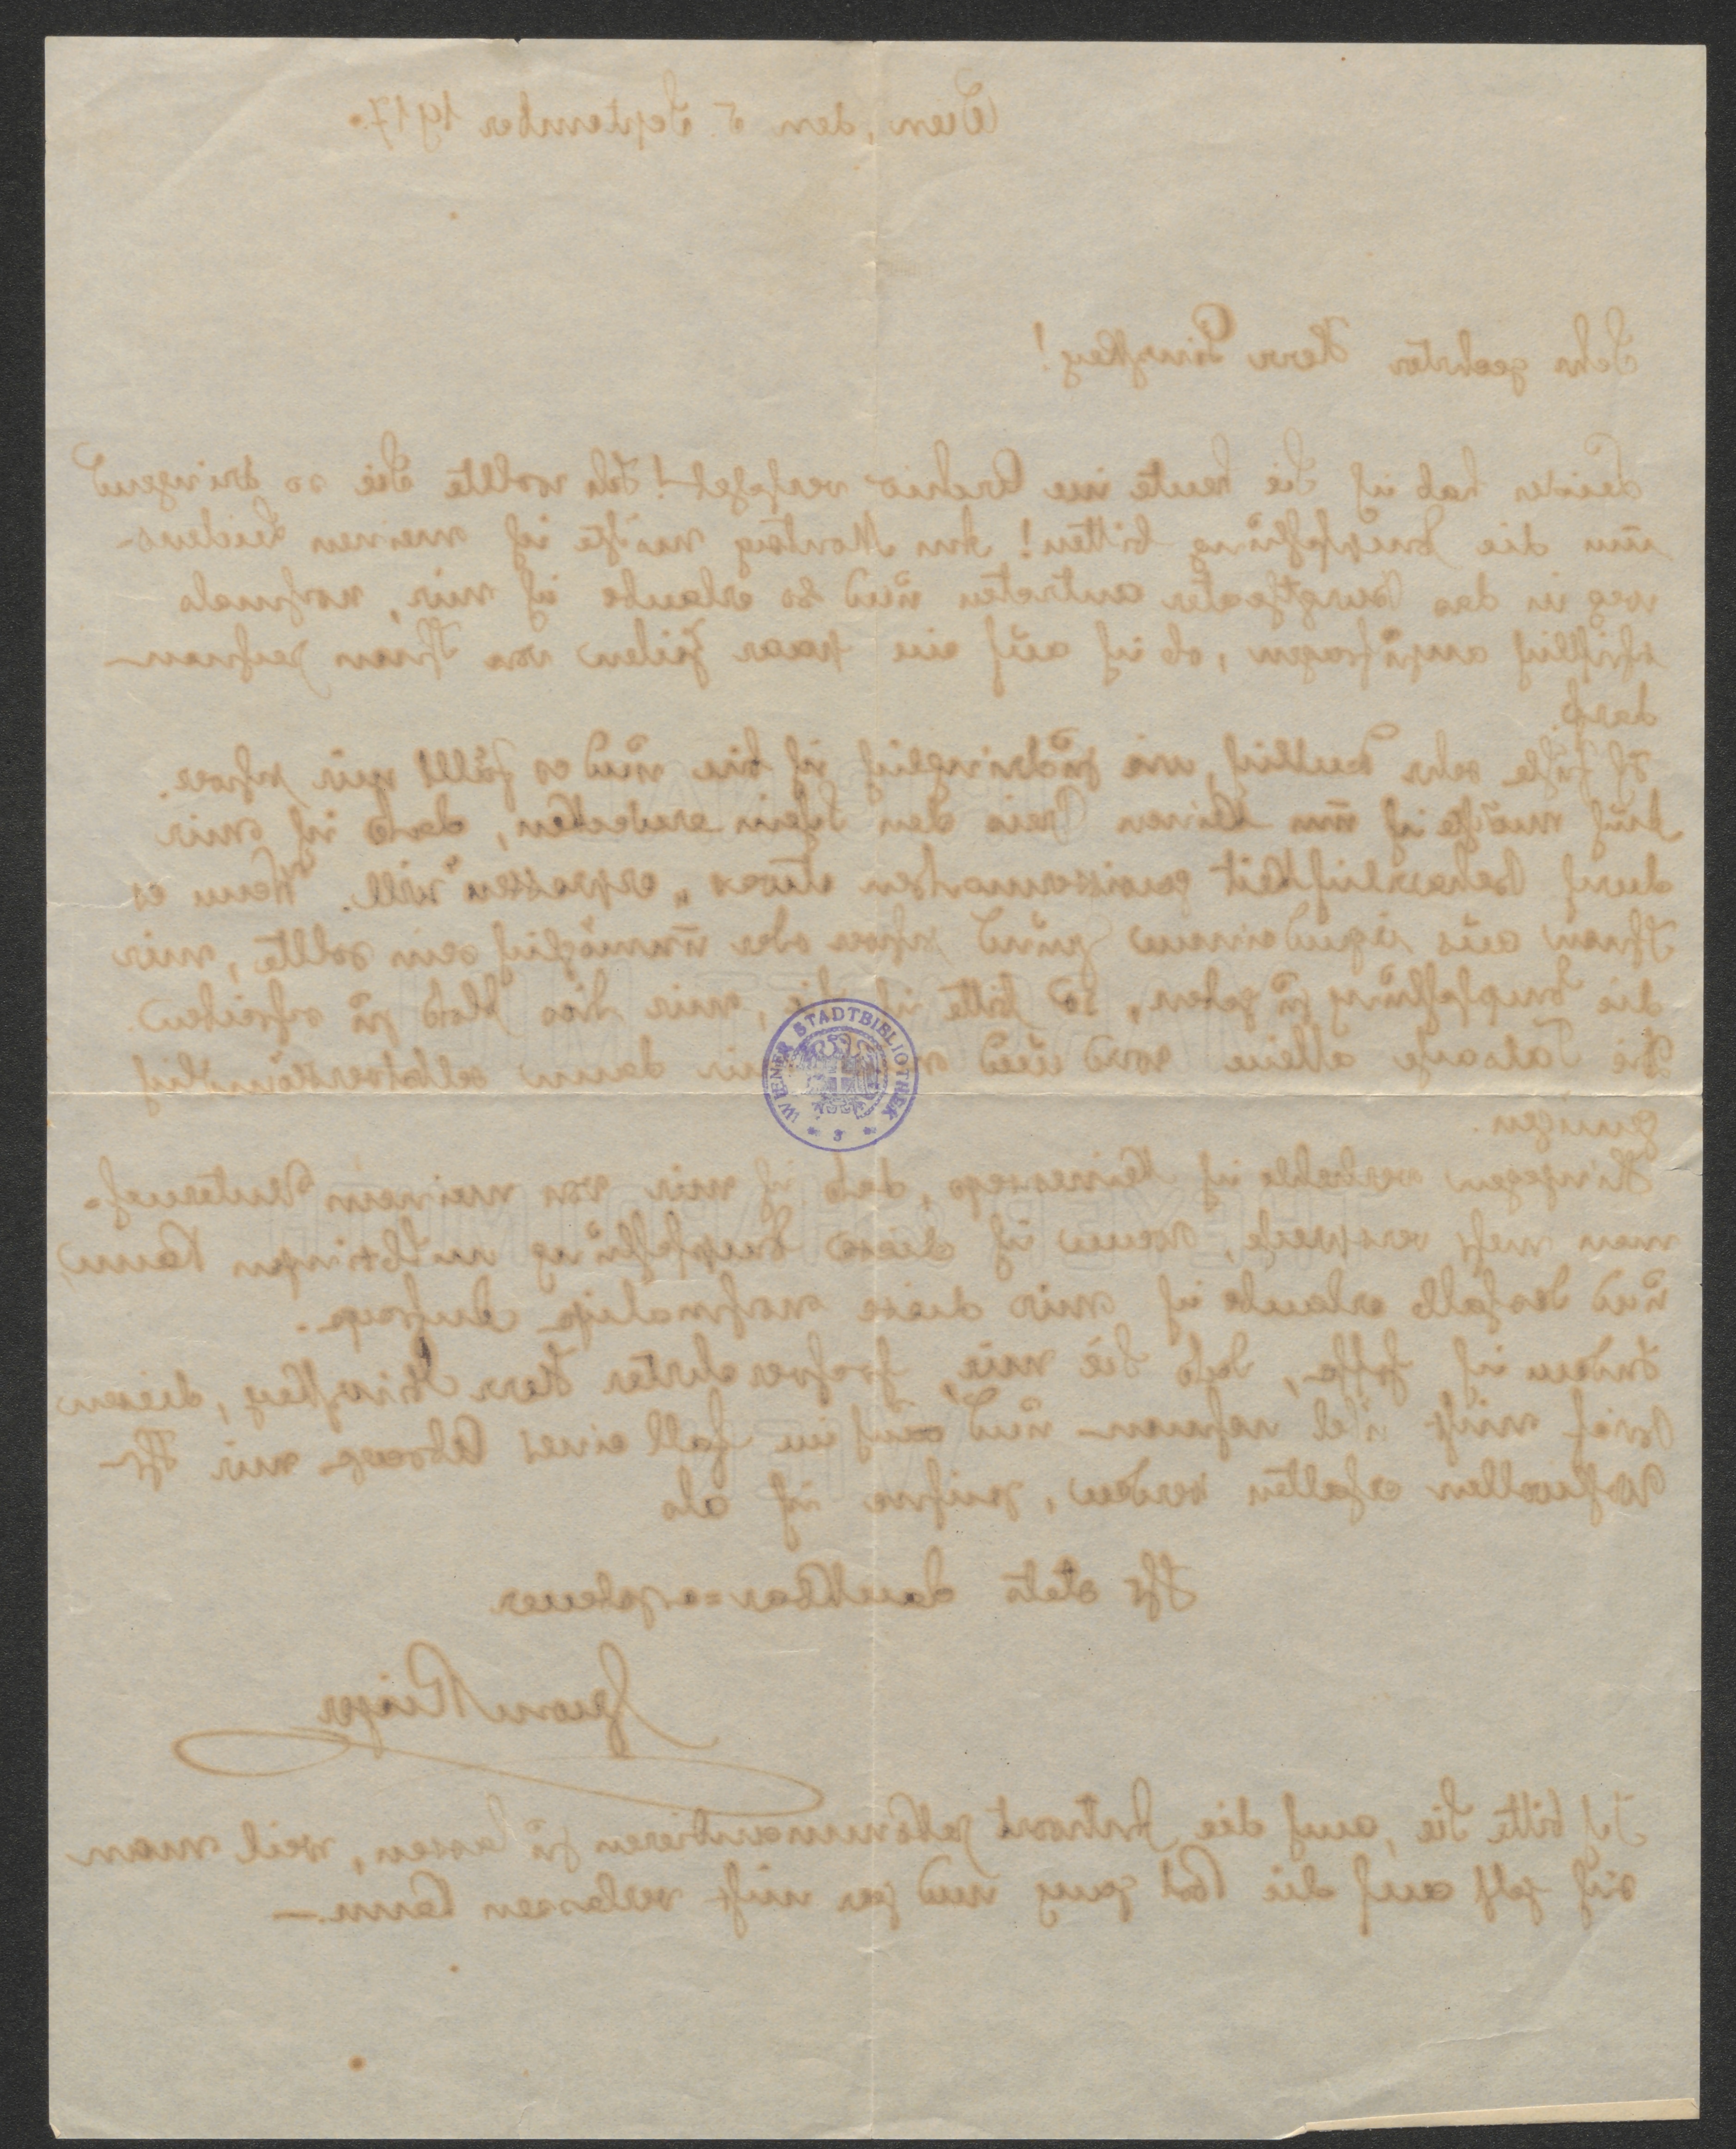 Wien, den 5. September 1917.
Sehr geehrter Herr Ginzkey!
Leider hab ich Sie heute im Archiv verfehlt! Ich wollte Sie so dringend
um die Empfehlung bitten! Am Montag möchte ich meinen Leidens-
weg in das Burgtheater antreten und so erlaube ich mir, nochmals
schriftlich anzufragen, ob ich auf ein paar Zeilen von Ihnen rechnen
darf.
Ich fühle sehr deutlich, wie zudringlich ich bin und es fällt mir schwer.
Auch möchte ich um keinen Preis den Schein erwecken, daß ich mir
durch Beharrlichkeit gewissermaßen etwas „erpressen" will. Wenn es
Ihnen aus irgendeinem Grund schwer oder unmöglich sein sollte, mir
die Empfehlung zu geben, so bitte ich Sie, mir das bloß zu schreiben
Die Tatsache allein wird und mir dann selbstverständlich
genügen.
Hingegen verhehle ich keineswegs, daß ich mir von meinem Unterneh-
men mehr verspreche, wenn ich diese Empfehlung mitbringen kann,
und deshalb erlaube ich mir diese nochmalige Anfrage.
Indem ich hoffe, daß Sie mir, hochverehrter Herr Ginzkey, diesen
Brief nicht übel nehmen und auch im Fall eines Absage mir Ihr
Wohlwollen erhalten werden, zeichne ich als
Ihr stets dankbar-ergebener
Ich bitte Sie, auf die Antwort rekommandieren zu lassen, weil man
sich jetzt auf die Post ganz und gar nicht verlassen kann.—
WIENER STADTBIBLIOTHEK